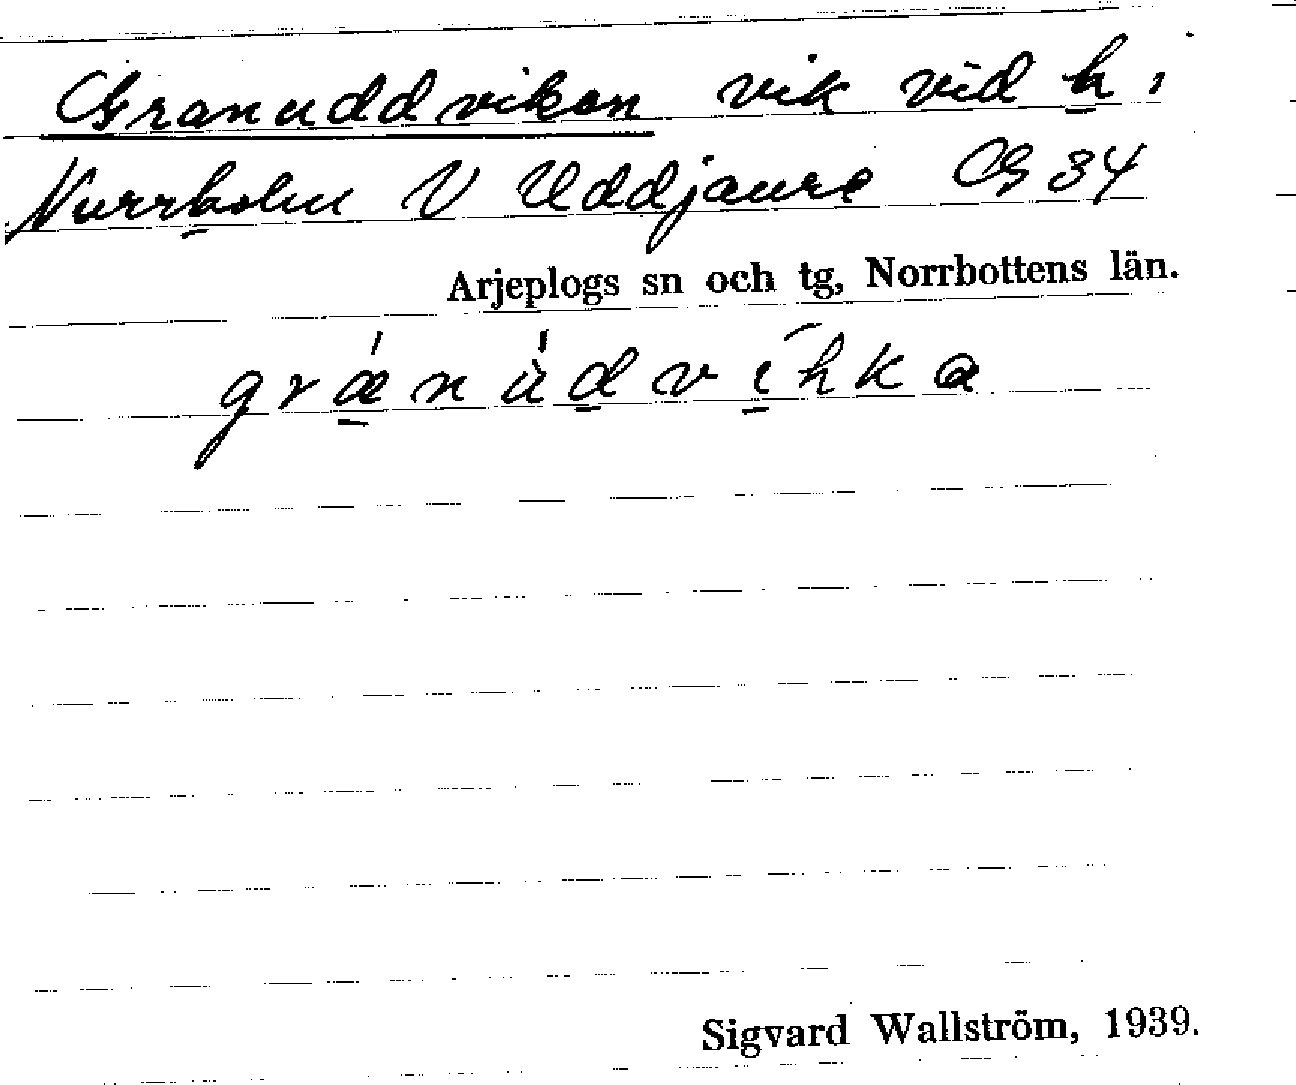 Granuddviken vik vid h,
Norrholm V Uddjaure G 34
Arjeplogs sn och tg, Norrbottens län.
grǽnùdvíhka
Sigvard Wallström, 1939.